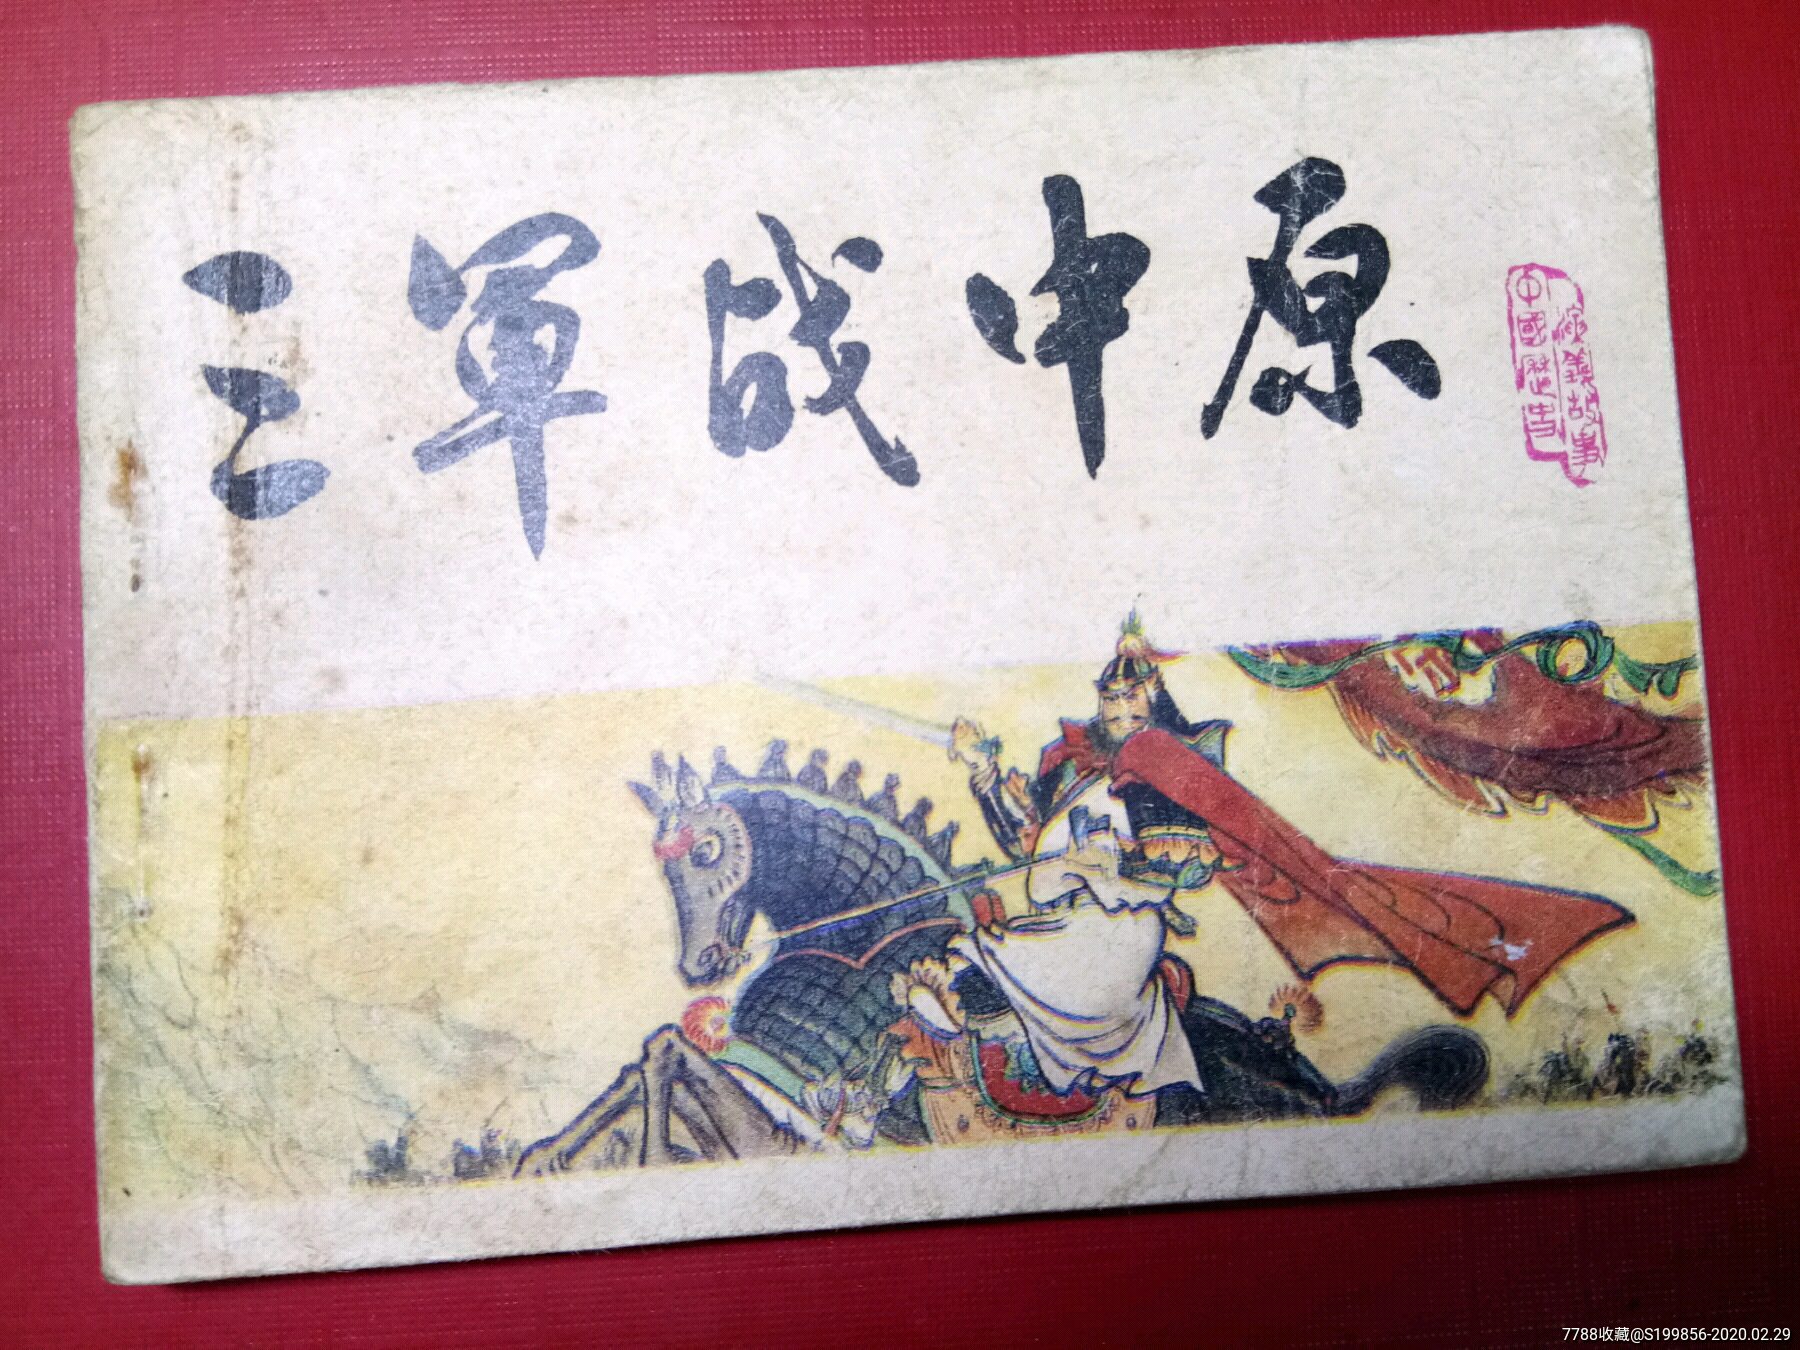 三軍战中原
中國歷史
演義故事
7788收藏@S199856-2020.02.29